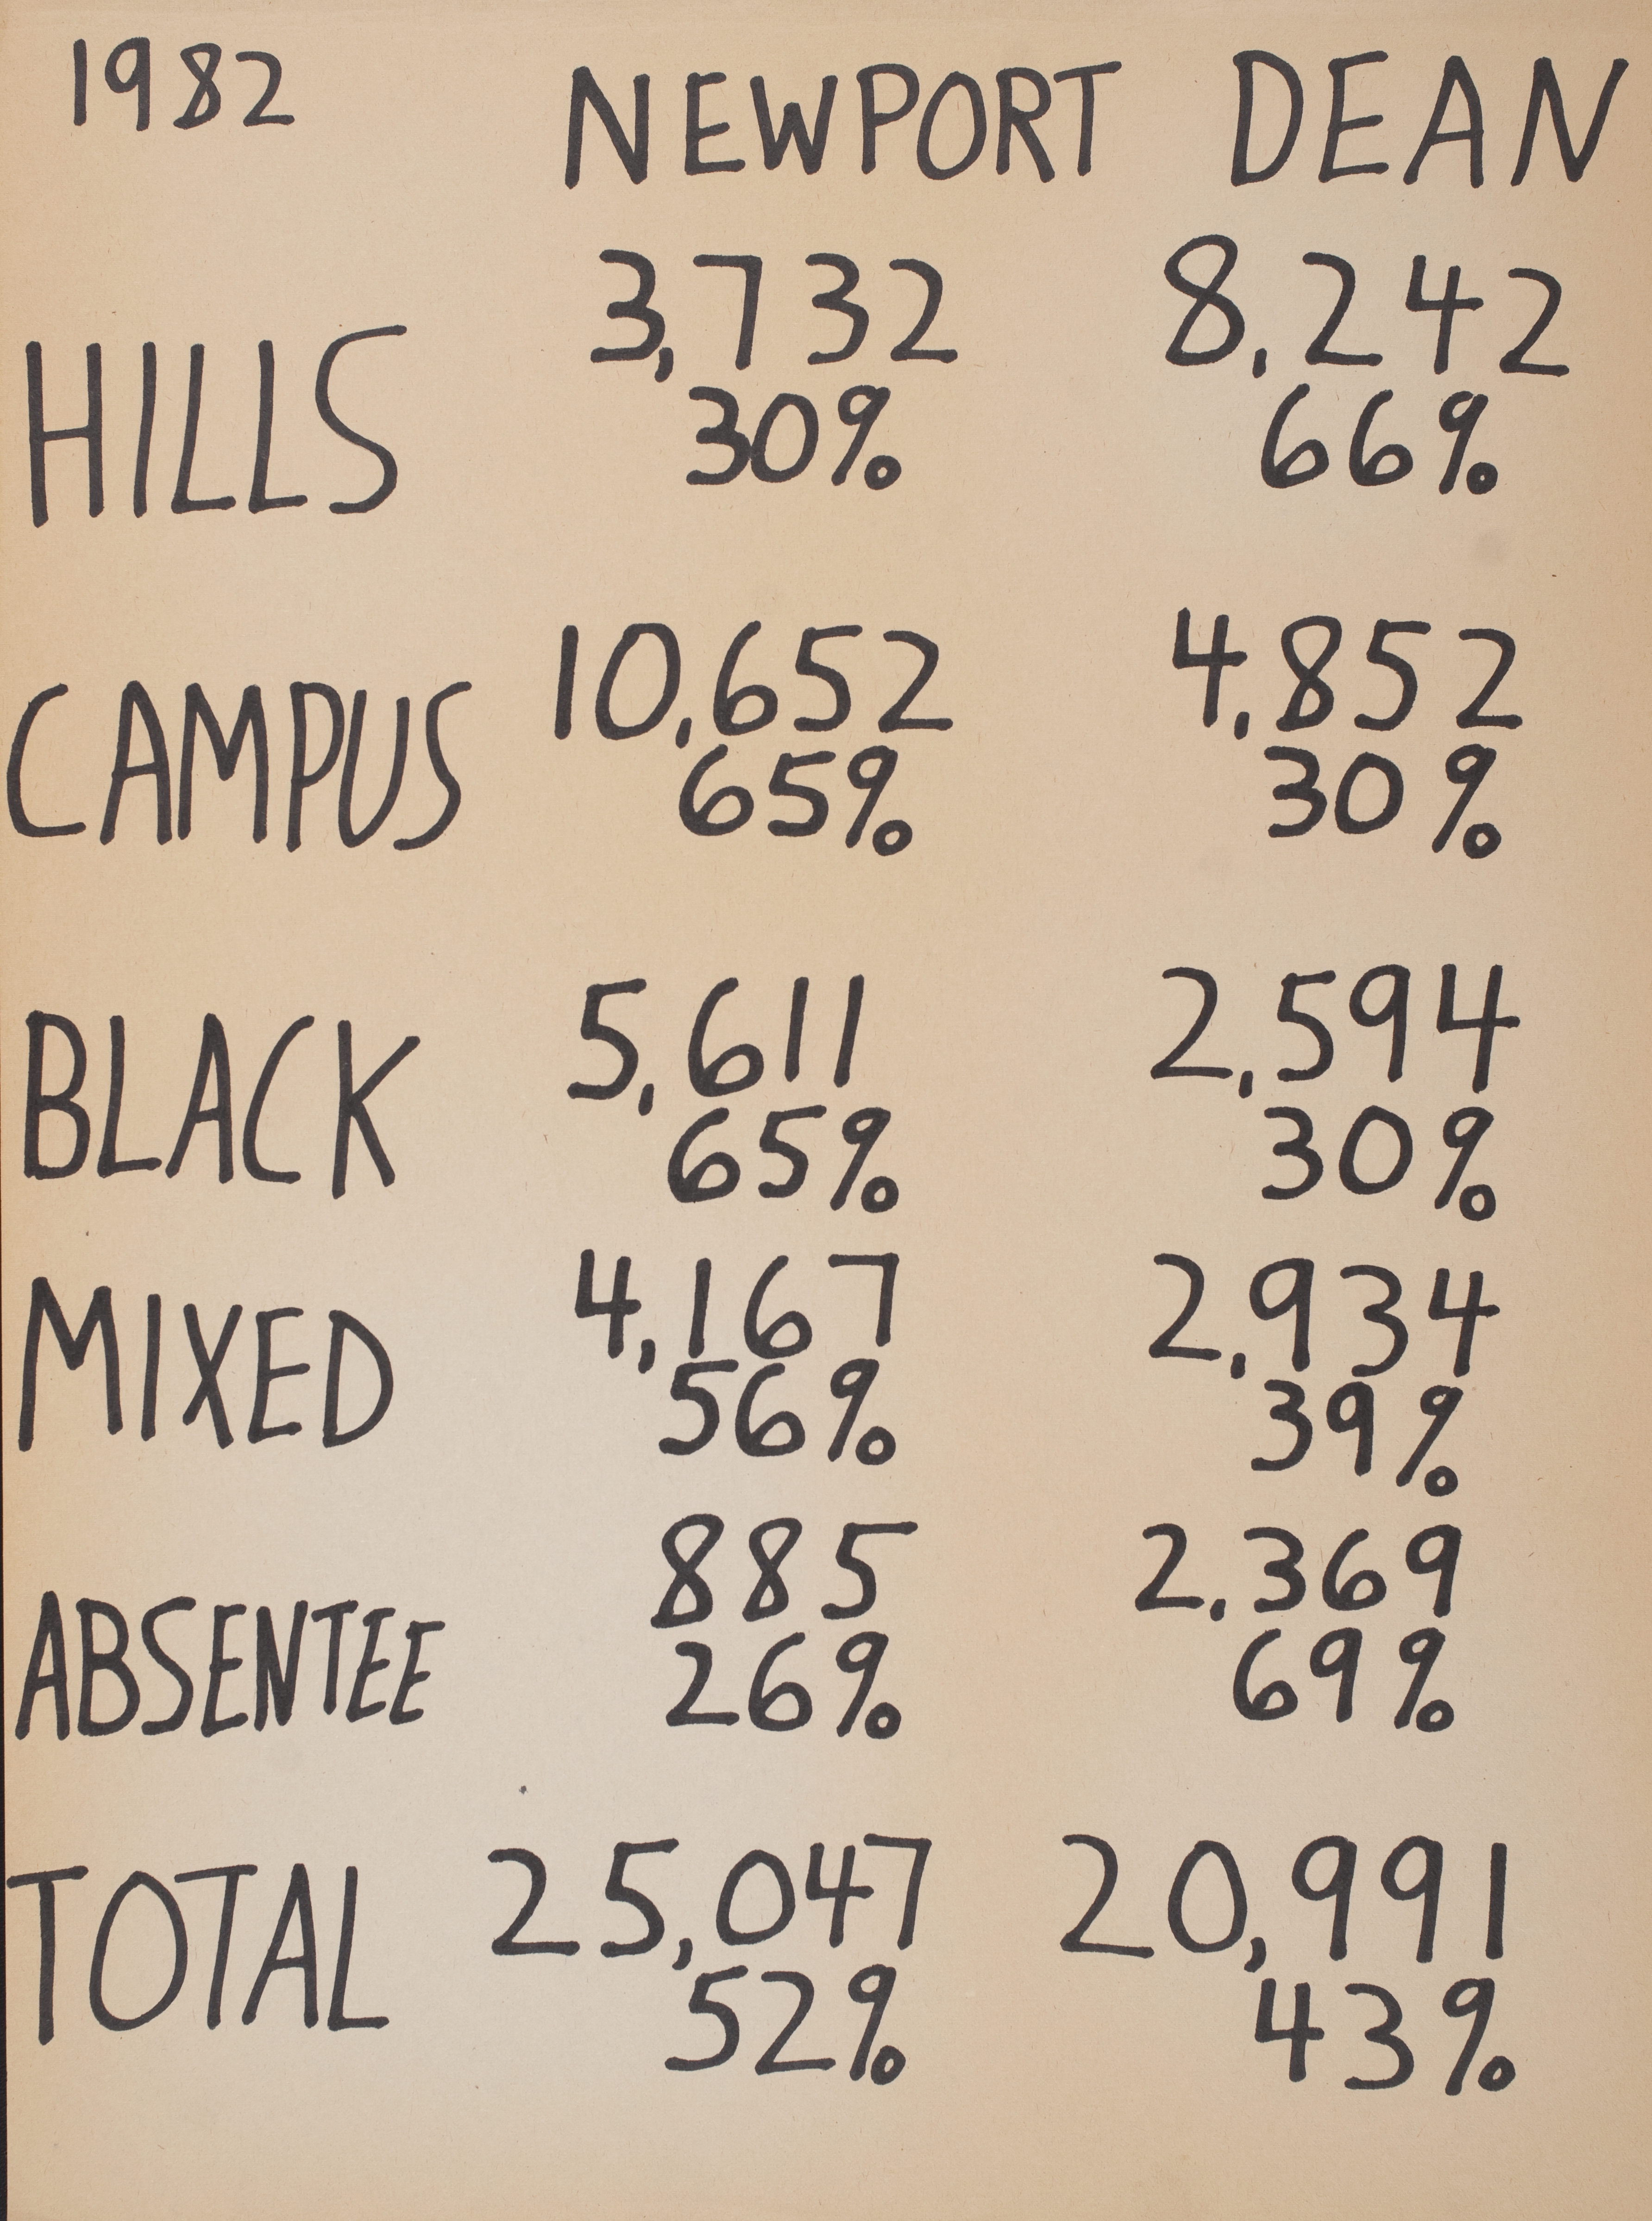 1982 NEWPORT DEAN
3,732 8,242
HILLS 30% 66%
10,652 4,852
CAMPUS 65% 30%
5,611 2,594
BLACK 65% 30%
4,167 2,934
MIXED 56% 39%
885 2.369
ABSENTEE 26% 69%
TOTAL 25,047 20,991
52% 43%